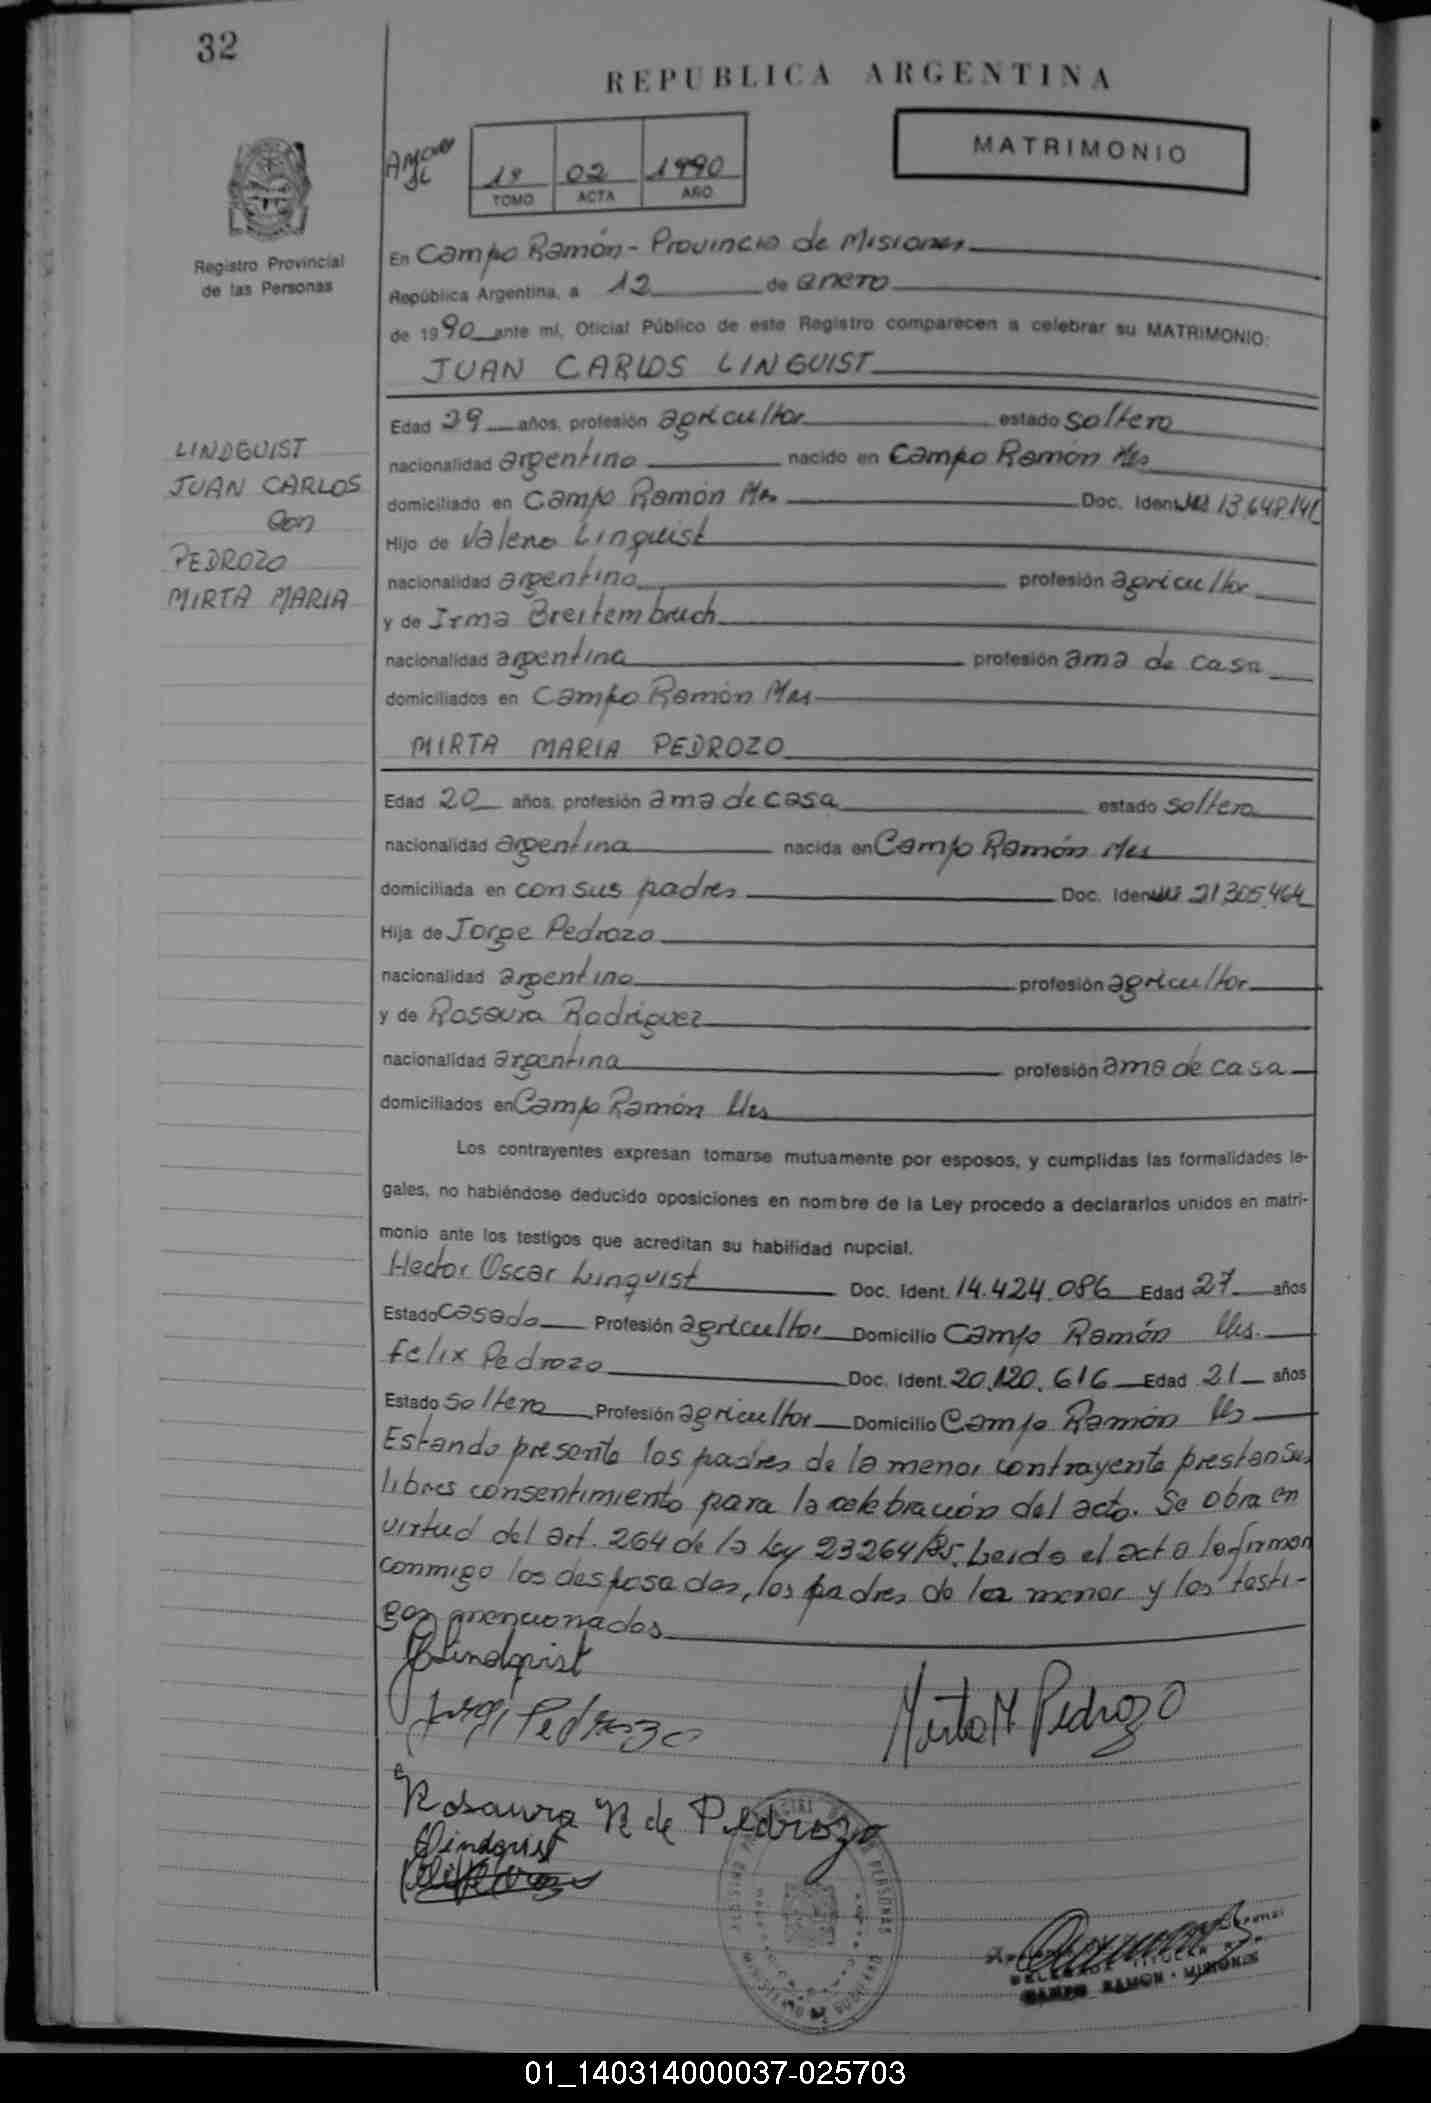 32
REPUBLICA ARGENTINA
MATRIMONIO
1º 02 1990
TOMO ACTA AÑO
Registro Provincial
de las Personas
En Campo Ramón - Provincia de Misiones
República Argentina, a 12 de enero
de 1990 ante mí, Oficial Público de este Registro comparecen a celebrar su MATRIMONIO:
JUAN CARLOS LINGUIST
Edad 29 años, profesión agricultor estado soltero
LINDGUIST
JUAN CARLOS
con
PEDROZO
MIRTA MARIA
nacionalidad argentino nacido en Campo Ramón Mes
domiciliado en Campo Ramón Mes Doc. Ident. 13.648.14
Hijo de Valerio Linquist
nacionalidad argentino profesión agricultor
y de Irma Breitembruch
nacionalidad argentina profesión ama de casa
domiciliados en Campo Ramón Mes
MIRTA MARIA PEDROZO
Edad 20 años, profesión ama de casa estado soltera
nacionalidad argentina nacida en Campo Ramón Mes
domiciliada en con sus padres Doc. Ident. 21.305.464
Hija de Jorge Pedrozo
nacionalidad argentino profesión agricultor
y de Rosaura Rodriguez
nacionalidad argentina profesión ama de casa
domiciliados en Campo Ramón Mes
Los contrayentes expresan tomarse mutuamente por esposos, y cumplidas las formalidades le-
gales, no habiéndose deducido oposiciones en nombre de la Ley procedo a declararlos unidos en matri-
monio ante los testigos que acreditan su habilidad nupcial.
Hector Oscar Linquist Doc. Ident. 14.424.086 Edad 27 años
Estado casado Profesión agricultor Domicilio Campo Ramón Mes.
Felix Pedrozo Doc. Ident. 20.120.616 Edad 21 años
Estado soltero Profesión agricultor Domicilio Campo Ramón Mes
Estando presente los padres de la menor contrayente prestan sus
libres consentimiento para la celebración del acto. Se obra en
virtud del art. 264 de la Ley 23264/85. Leida el acta la firman
conmigo los desposados, los padres de la menor y los testi-
gos mencionados
Lindquist
Jorge Pedrozo
Mirta M Pedrozo
Rosaura R de Pedrozo
Lindquist
CAMPO RAMON - MISIONES
01_140314000037-025703